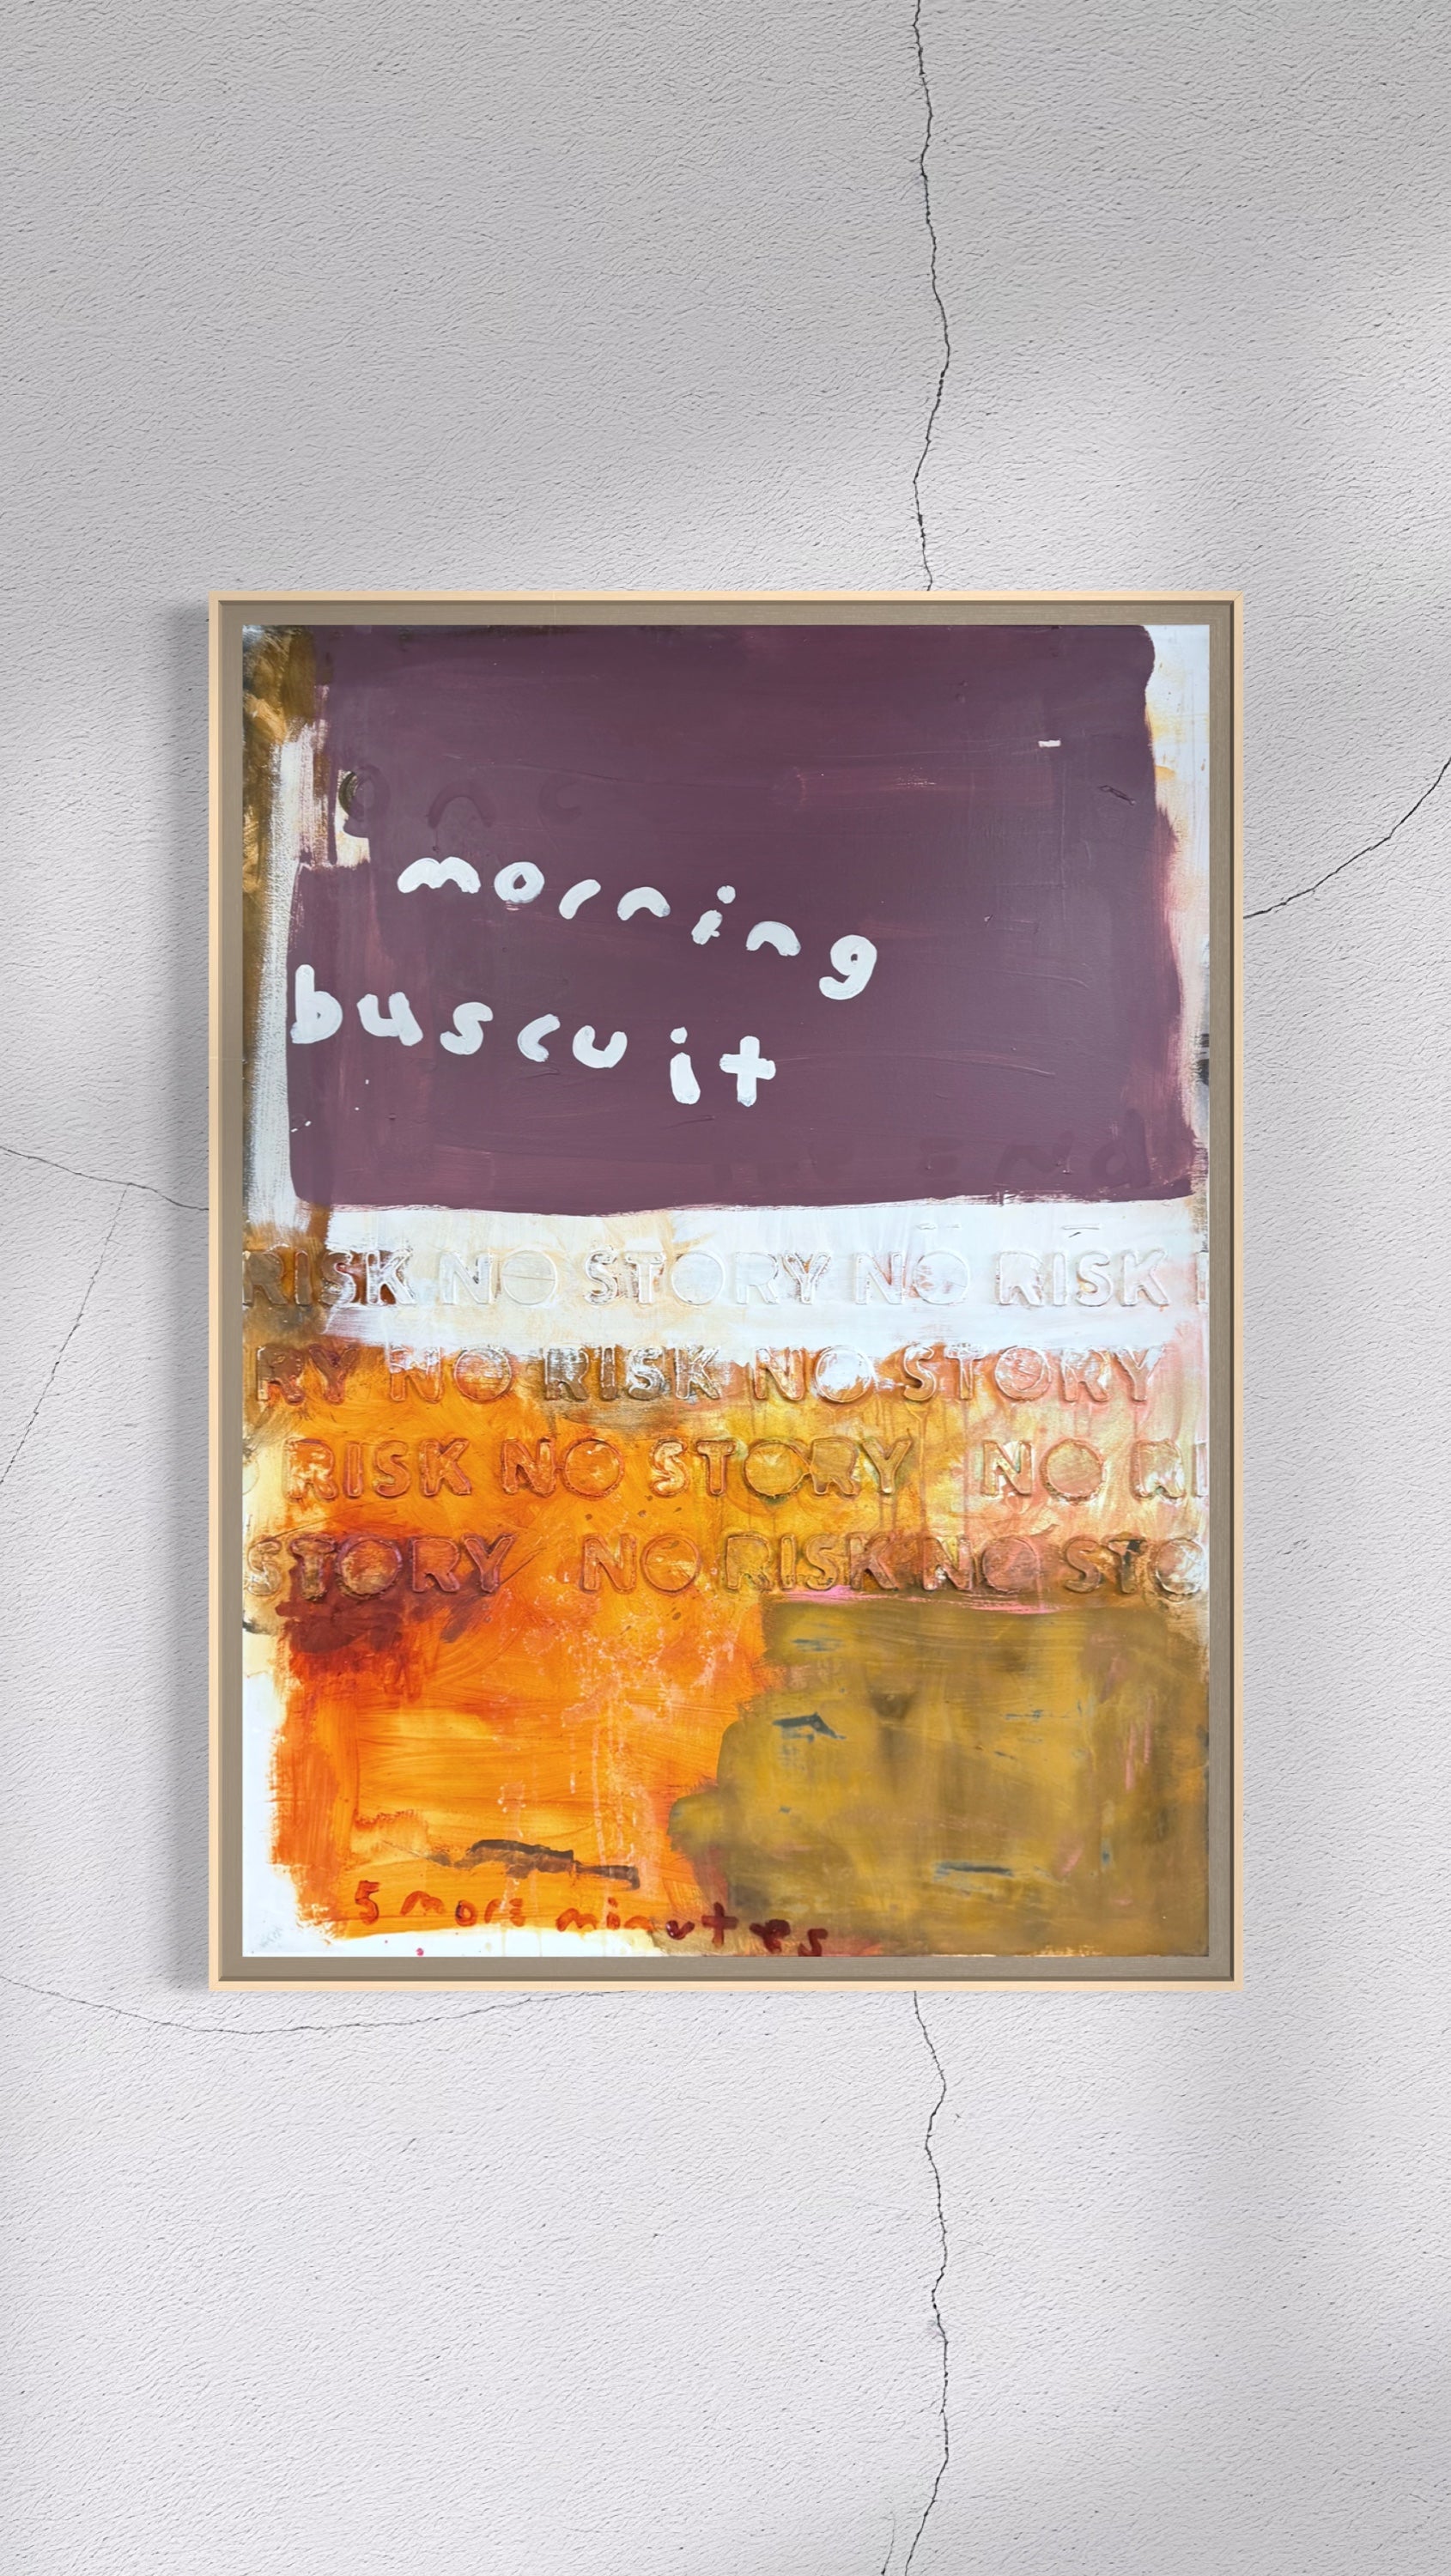 morning
buscuit
RISK NO STORY NO RISK
RY NO RISK NO STORY
RISK NO STORY NO RI
STORY NO RISK NO STO
5 more minutes